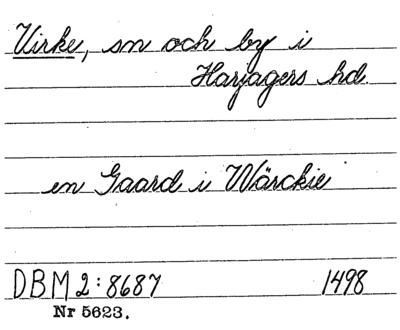 Virke, sn och by i
Harjagers hd.
en Gaard i Wärckie
DBM 2:8687 1498
Nr 5623.